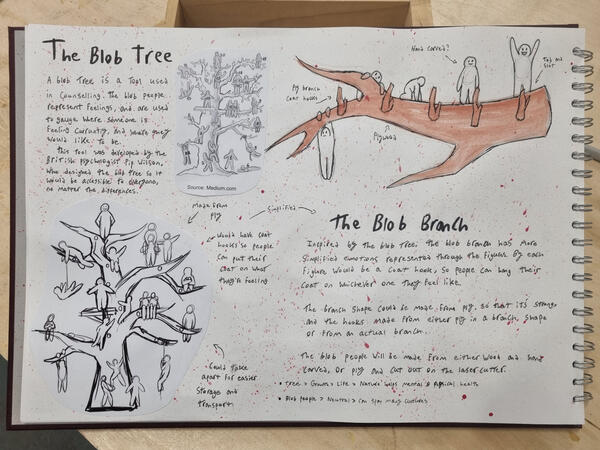 The Blob Tree
A blob tree is a tool used
in counselling. the blob people
represent feelings, and are used
to gauge where someone is
feeling currently, and where they
would like to be.
this tool was developed by the
British psychologist Pip Wilson,
who designed the blob tree so it
would be accessible to everyone,
no matter the differences.
Source: Medium.com
Hand carved?
Tab and
slot
Ply branch
coat hooks
Plywood
Made from
ply
Simplified
Would have coat
hooks so people
can put their
coat on what
they're feeling
Could take
apart for easier
storage and
transport.
The Blob Branch
Inspired by the blob tree, the blob branch has more
simplified emotions represented through the figures. By each
figure would be a coat hook, so people can hang their
coat on whichever one they feel like.
The branch shape could be made from ply, so that it's strong,
and the hooks made from either ply in a branch shape
or from an actual branch.
The blob people will be made from either wood and hand
carved, or ply and cut out on the laser cutter.
• Tree > Growth > Life > Nature helps mental & physical health
• Blob people > Neutral > can span many cultures